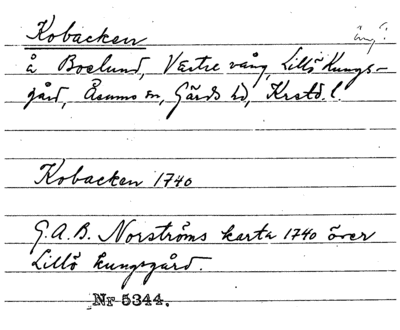 Kobacken
äng?
å Boelund, Västre vång, Lillö Kungs-
gård, Åsums sn, Gärds hd, Krstd. l.
Kobacken 1740
G.A.B. Norströms karta 1740 över
Lillö kungsgård.
Nr 5344.